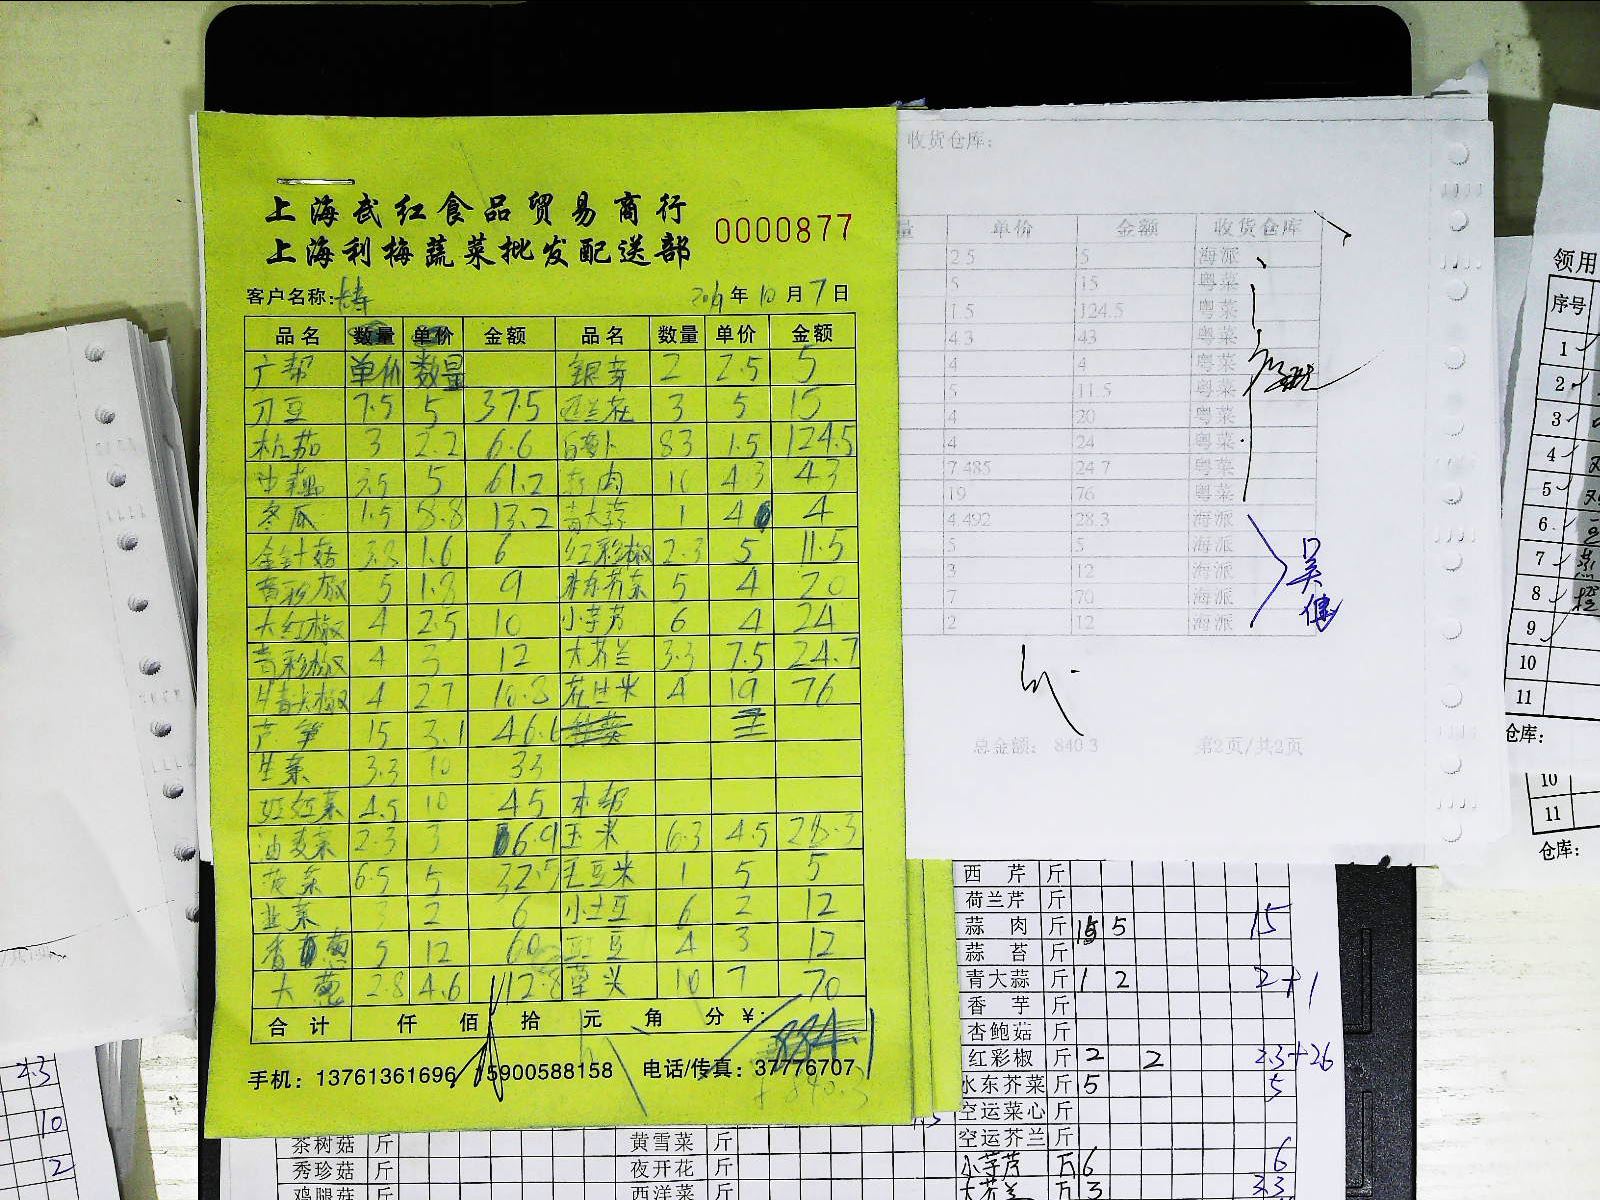 上海武红食品贸易商行
上海利梅蔬菜批发配送部
0000877
客户名称: 年10月7日
品名 数量 单价 金额 品名 数量 单价 金额
广帮 单价 数量 银芽 2 2.5 5
刀豆 7.5 5 37.5 西兰花 3 5 15
杭茄 3 2.2 6.6 白萝卜 83 1.5 124.5
5 61.2 10 4.3 43
冬瓜 1.5 8.8 13.2 青大蒜 1 4 4
金针菇 1.6 6 红彩椒 2.3 5 11.5
5 1.8 9 水东芥菜 5 4 20
大红椒 4 2.5 10 小芋艿 6 4 24
青彩椒 4 3 12 大芥兰 3.3 7.5 24.7
4 2.7 10.8 花生米 4 19 76
芦笋 15 3.1 46.1
生菜 3.3 10 33
4.5 10 45 本帮
油麦菜 2.3 3 6.9 玉米 6.3 4.5 28.3
菠菜 6.5 5 32.5 毛豆米 1 5 5
韭菜 3 2 6 小土豆 6 2 12
5 12 60 豇豆 4 3 12
大葱 2.8 4.6 12.8 10 7 70
合计 仟 佰 拾 元 角 分 ¥: 884.1
手机: 13761361696 15900588158 电话/传真: 37776707
840.3
收货仓库:
量 单价 金额 收货仓库
2.5 5 海派
5 15 粤菜
1.5 124.5 粤菜
4.3 43 粤菜
4 4 粤菜
5 11.5 粤菜
4 20 粤菜
4 24 粤菜
7.485 24.7 粤菜
19 76 粤菜
4.492 28.3 海派
5 5 海派
3 12 海派
7 70 海派
2 12 海派
吴健
总金额: 840.3 第2页/共2页
西芹 斤
荷兰芹 斤
蒜肉 斤 5 15
蒜苔 斤
青大蒜 斤 1 2 2+1
香芋 斤
杏鲍菇 斤
红彩椒 斤 2 2 2.3+26
水东芥菜 斤 5 5
空运菜心 斤
空运芥兰 斤
小芋艿 斤 6 6
大芥兰 斤 3 3.3
茶树菇 斤 黄雪菜 斤
秀珍菇 斤 夜开花 斤
鸡腿菇 斤 西洋菜 斤
领用
序号
1
2
3
4
5
6
7
8
9
10
11
仓库:
10
11
仓库:
2.3
10
2